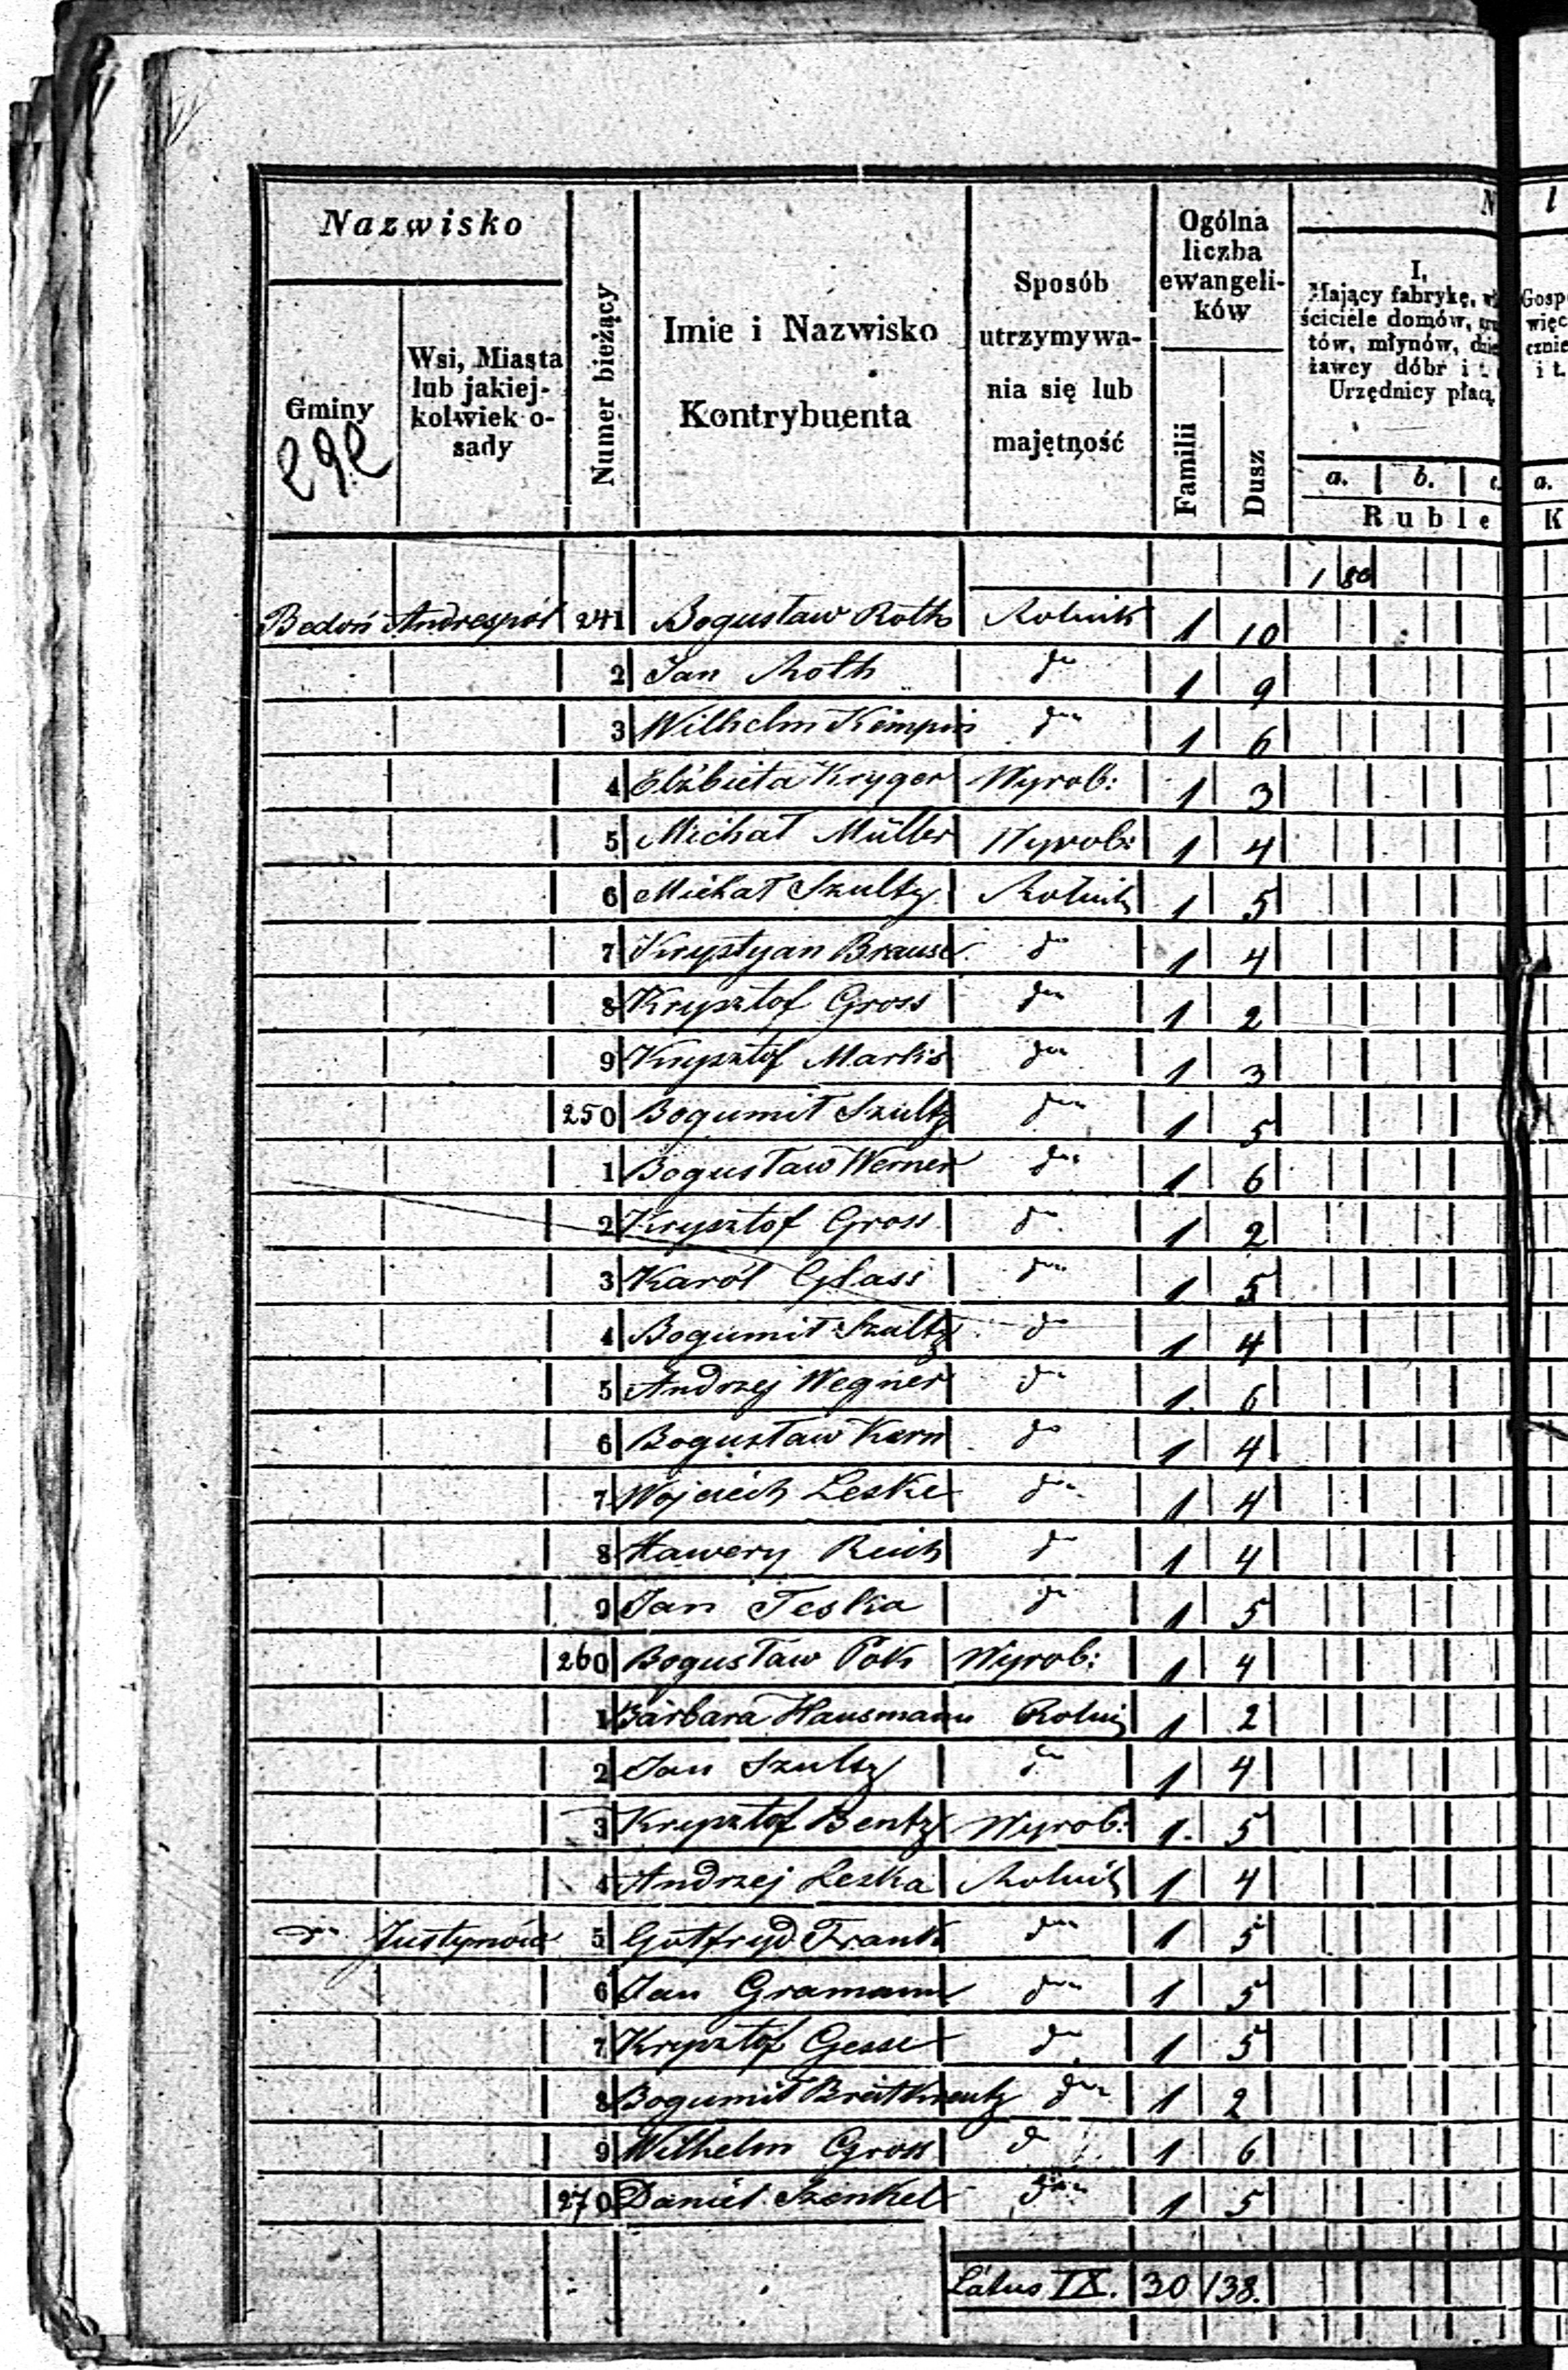 Nazwisko
Gminy
Wsi, Miasta lub jakiej-kolwiek o-sady
Numer bieżący
Imie i Nazwisko Kontrybuenta
Sposób utrzymywa-nia się lub majętność
Ogólna liczba ewangeli-ków
Familii
Dusz
I.
Mający fabrykę,
ściciele domów,
tów, młynów,
żawcy dóbr i t.
Urzędnicy płacą
a. b. a.
Ruble K
Gosp
więc
cznie
i t.
1 80
Bedoń Andrespól 241 Bogusław Roth Rolnik 1 10
2 Jan Roth do 1 9
3 Wilhelm Kempin do 1 6
4 Elżbieta Kryger Wyrob: 1 3
5 Michał Müller Wyrob: 1 4
6 Michał Szultz Rolnik 1 5
7 Krystyan Brause do 1 4
8 Krysztof Gross do 1 2
9 Krysztof Marks do 1 3
250 Bogumił Szultz do 1 5
1 Bogusław Werner do 1 6
2 Krysztof Gross do 1 2
3 Karól Glass do 1 5
4 Bogumił Szultz do 1 4
5 Andrzej Wegner do 1 6
6 Bogusław Kern do 1 4
7 Wojciech Leske do 1 4
8 Xawery Reich do 1 4
9 Jan Teska do 1 5
260 Bogusław Wyrob: 1 4
1 Barbara Hausmann Rolni 1 2
2 Jan Szultz do 1 4
3 Krysztof Bentz Wyrob: 1 5
4 Andrzej Leska Rolnik 1 4
do Justynów 5 Gotfryd Frank do 1 5
6 Jan Gramann do 1 5
7 Krysztof Gesse do 1 5
8 Bogumił Breitkreutz do 1 2
9 Wilhelm Gross do 1 6
270 Daniel Szenkel do 1 5
Latus IX. 30 138.